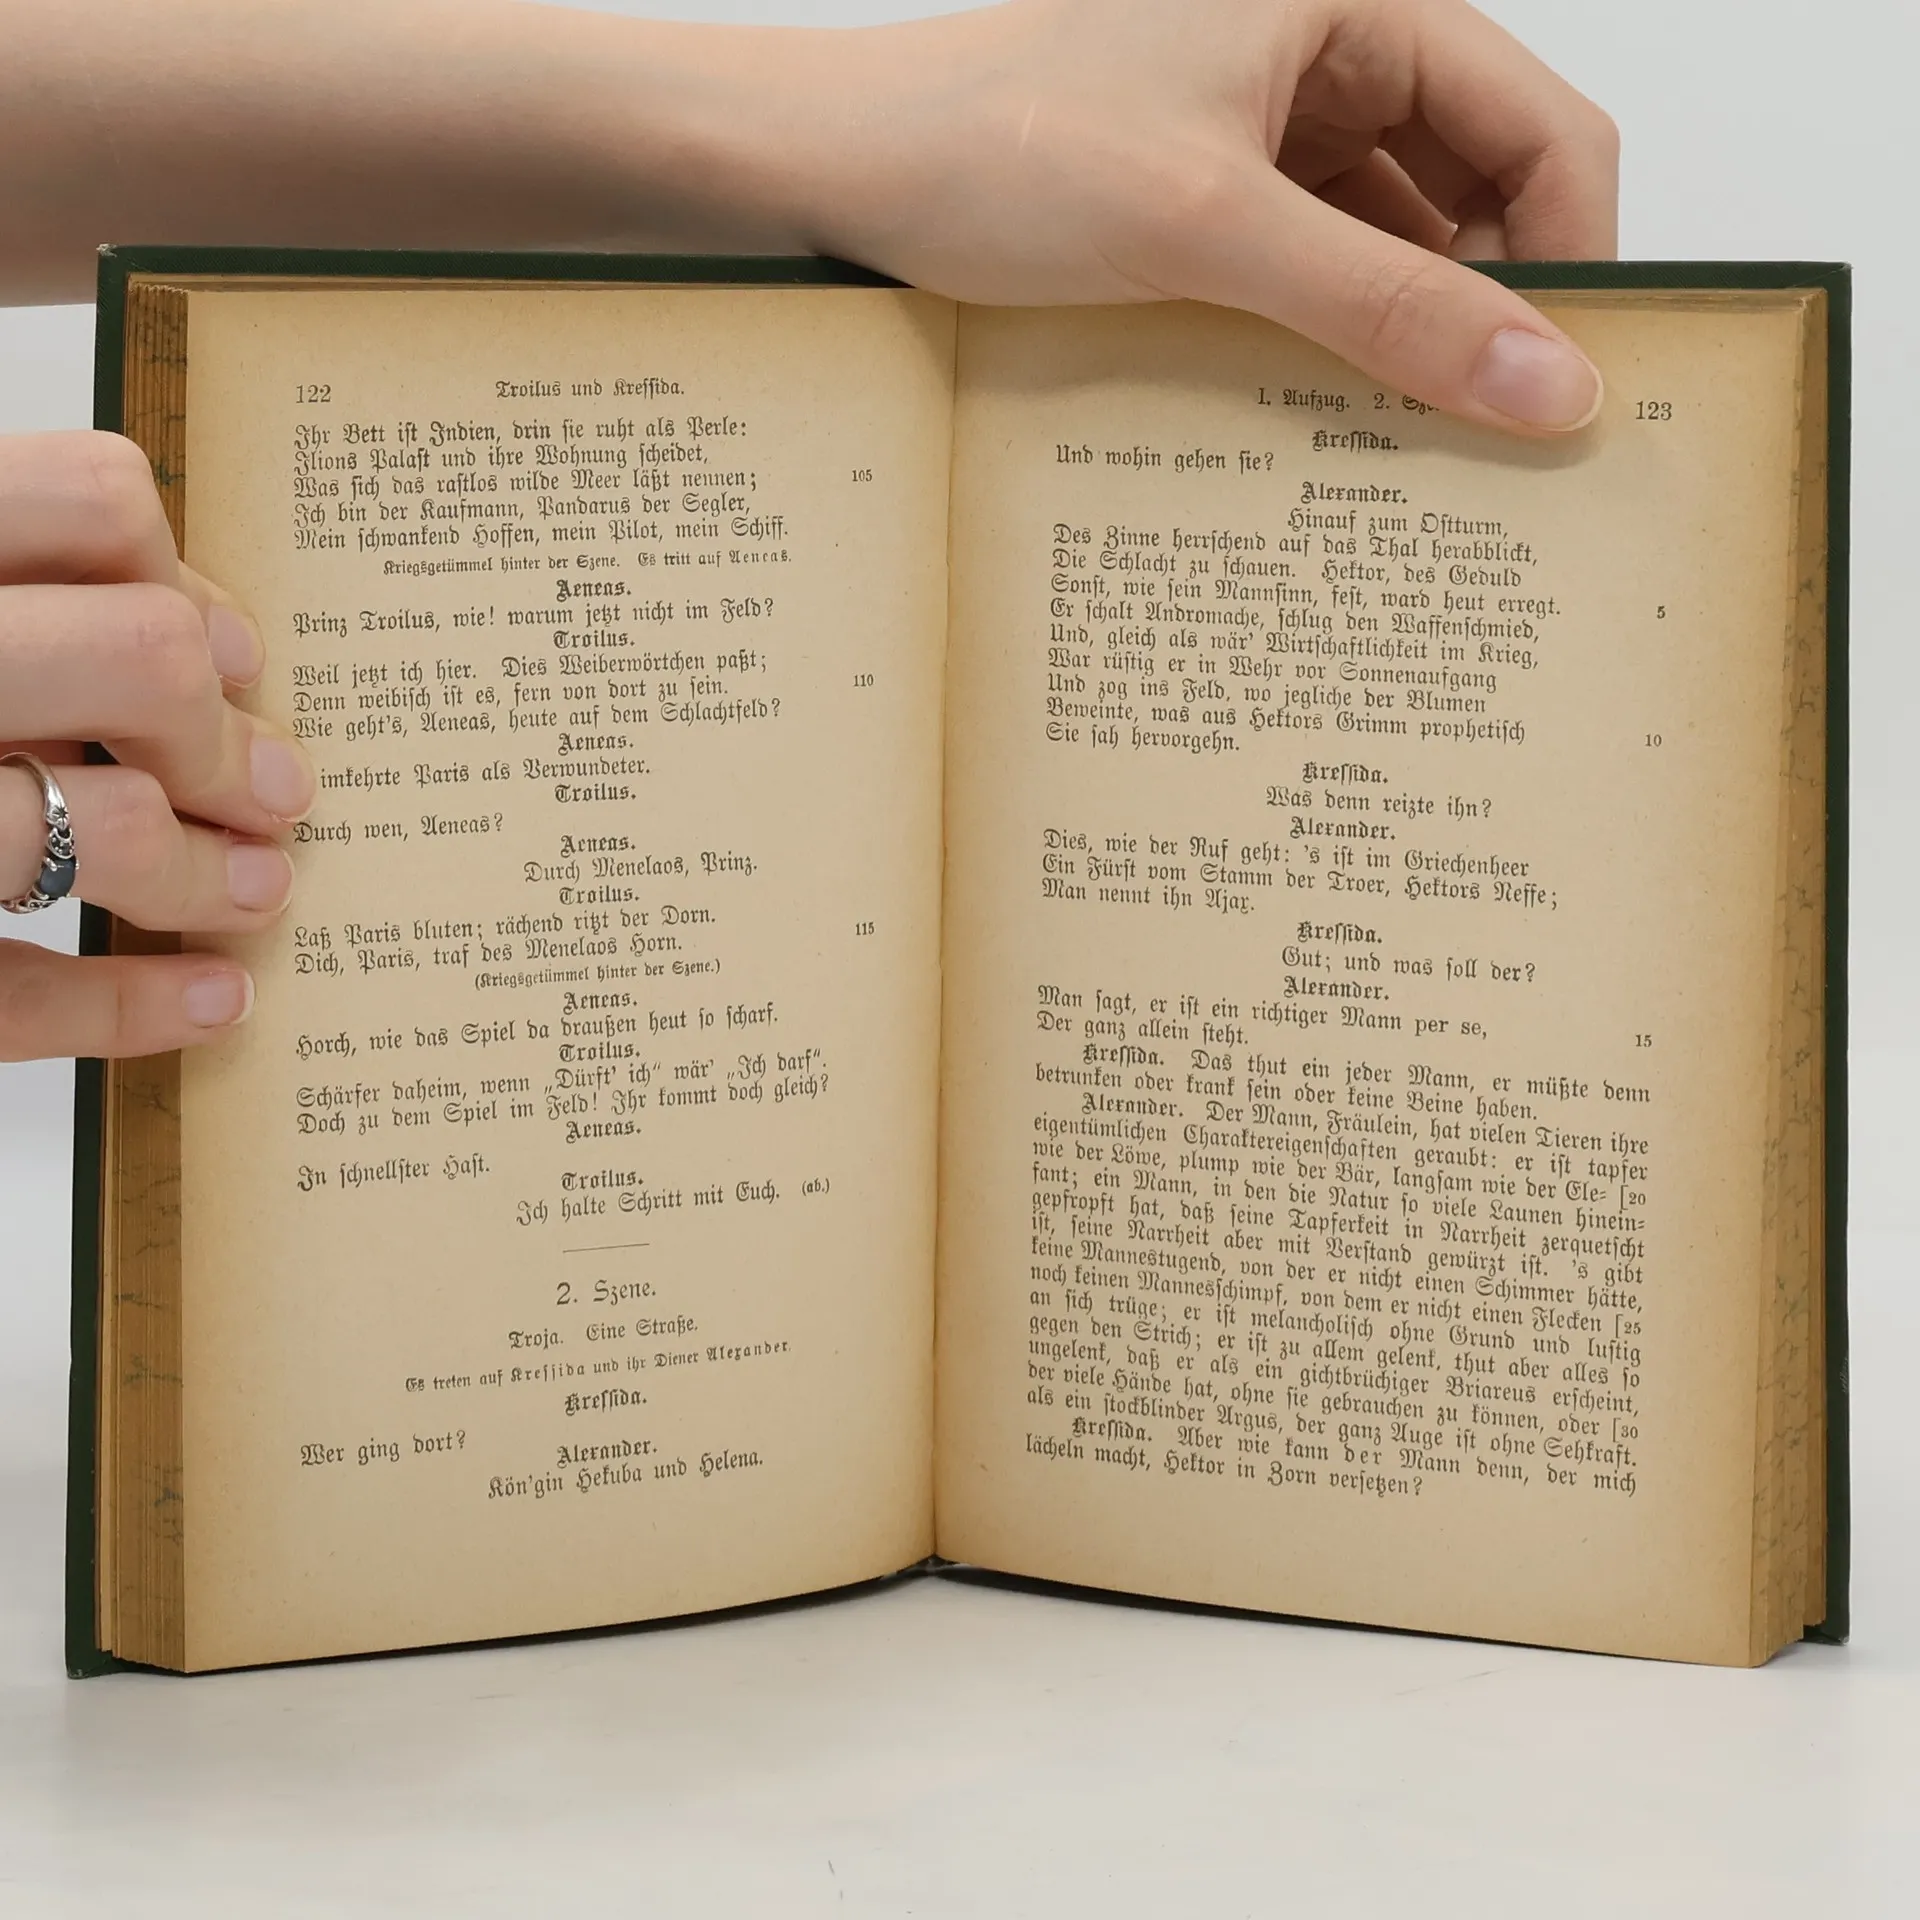 122
Troilus und Kressida.
Ihr Bett ist Indien, drin sie ruht als Perle:
Ilions Palast und ihre Wohnung scheidet,
Was sich das rastlos wilde Meer läßt nennen; 105
Ich bin der Kaufmann, Pandarus der Segler,
Mein schwankend Hoffen, mein Pilot, mein Schiff.
Kriegsgetümmel hinter der Szene. Es tritt auf Aeneas.
Aeneas.
Prinz Troilus, wie! warum jetzt nicht im Feld?
Troilus.
Weil jetzt ich hier. Dies Weiberwörtchen paßt;
Denn weibisch ist es, fern von dort zu sein. 110
Wie geht's, Aeneas, heute auf dem Schlachtfeld?
Aeneas.
imkehrte Paris als Verwundeter.
Troilus.
Durch wen, Aeneas?
Aeneas.
Durch Menelaos, Prinz.
Troilus.
Laß Paris bluten; rächend ritzt der Dorn. 115
Dich, Paris, traf des Menelaos Horn.
(Kriegsgetümmel hinter der Szene.)
Aeneas.
Horch, wie das Spiel da draußen heut so scharf.
Troilus.
Schärfer daheim, wenn „Dürft' ich“ wär' „Ich darf“.
Doch zu dem Spiel im Feld! Ihr kommt doch gleich?
Aeneas.
In schnellster Hast.
Troilus.
Ich halte Schritt mit Euch. (ab.)
2. Szene.
Troja. Eine Straße.
Es treten auf Kressida und ihr Diener Alexander.
Kressida.
Wer ging dort?
Alexander.
Kön'gin Hekuba und Helena.
I. Aufzug. 2. 
123
Kressida.
Und wohin gehen sie?
Alexander.
Hinauf zum Ostturm,
Des Zinne herrschend auf das Thal herabblickt,
Die Schlacht zu schauen. Hektor, des Geduld
Sonst, wie sein Mannsinn, fest, ward heut erregt. 5
Er schalt Andromache, schlug den Waffenschmied,
Und, gleich als wär' Wirtschaftlichkeit im Krieg,
War rüstig er in Wehr vor Sonnenaufgang
Und zog ins Feld, wo jegliche der Blumen
Beweinte, was aus Hektors Grimm prophetisch 10
Sie sah hervorgehn.
Kressida.
Was denn reizte ihn?
Alexander.
Dies, wie der Ruf geht: 's ist im Griechenheer
Ein Fürst vom Stamm der Troer, Hektors Neffe;
Man nennt ihn Ajax.
Kressida.
Gut; und was soll der?
Alexander.
Man sagt, er ist ein richtiger Mann per se, 15
Der ganz allein steht.
Kressida. Das thut ein jeder Mann, er müßte denn
betrunken oder krank sein oder keine Beine haben.
Alexander. Der Mann, Fräulein, hat vielen Tieren ihre
eigentümlichen Charaktereigenschaften geraubt: er ist tapfer
wie der Löwe, plump wie der Bär, langsam wie der Ele- [20
fant; ein Mann, in den die Natur so viele Launen hinein-
gepfropft hat, daß seine Tapferkeit in Narrheit zerquetscht
ist, seine Narrheit aber mit Verstand gewürzt ist. 's gibt
keine Mannestugend, von der er nicht einen Schimmer hätte,
noch keinen Mannesschimpf, von dem er nicht einen Flecken [25
an sich trüge; er ist melancholisch ohne Grund und lustig
gegen den Strich; er ist zu allem gelenk, thut aber alles so
ungelenk, daß er als ein gichtbrüchiger Briareus erscheint,
der viele Hände hat, ohne sie gebrauchen zu können, oder [30
als ein stockblinder Argus, der ganz Auge ist ohne Sehkraft.
Kressida. Aber wie kann der Mann denn, der mich
lächeln macht, Hektor in Zorn versetzen?